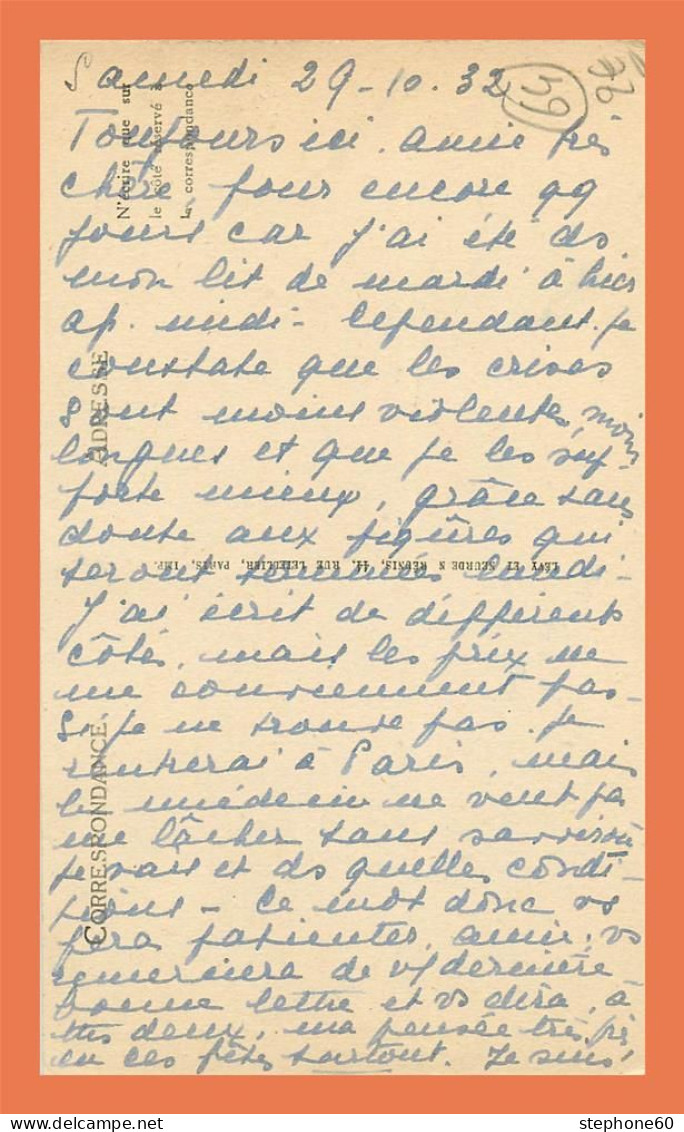 Samedi 29-10.32
59
Toujours ici, amie très
chère, pour encore qq
jours car j'ai été ds
mon lit de mardi à hier
ap. midi - Cependant je
constate que les crises
sont moins violentes, moins
longues et que je les sup-
porte mieux, grâce sans
doute aux piqûres qui
seront terminées lundi -
J'ai écrit de différents
côtés, mais les prix ne
me conviennent pas -
Si je ne trouve pas je
rentrerai à Paris, mais
le médecin ne veut pas
me lâcher sans savoir où
je vais et ds quelles condi-
tions - Ce mot donc vs
fera patienter, amie, vs
remerciera de v/ dernière
bonne lettre et vs dira, à
tts deux, ma pensée très
en ces fêtes surtout. Je suis
N'écrire que sur
le côté réservé à
la correspondance
ADRESSE
CORRESPONDANCE
LÉVY ET NEURDEIN RÉUNIS, 44, RUE LETELLIER, PARIS, IMP.
stephone60